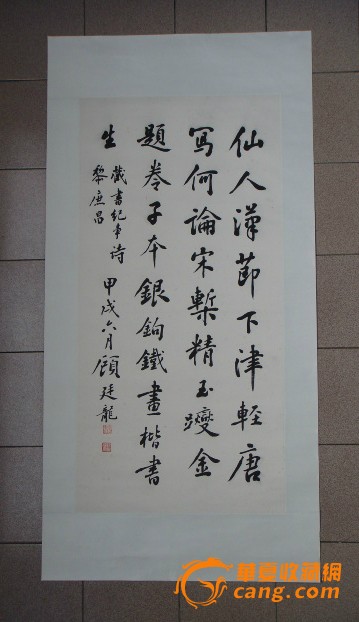 仙人漢節下津輕唐
寫何論宋槧精玉躞金
題卷子本銀鉤鐵畫楷書
生
藏書紀事詩
黎庶昌
甲戌六月顧廷龍
華夏收藏網
cang.com